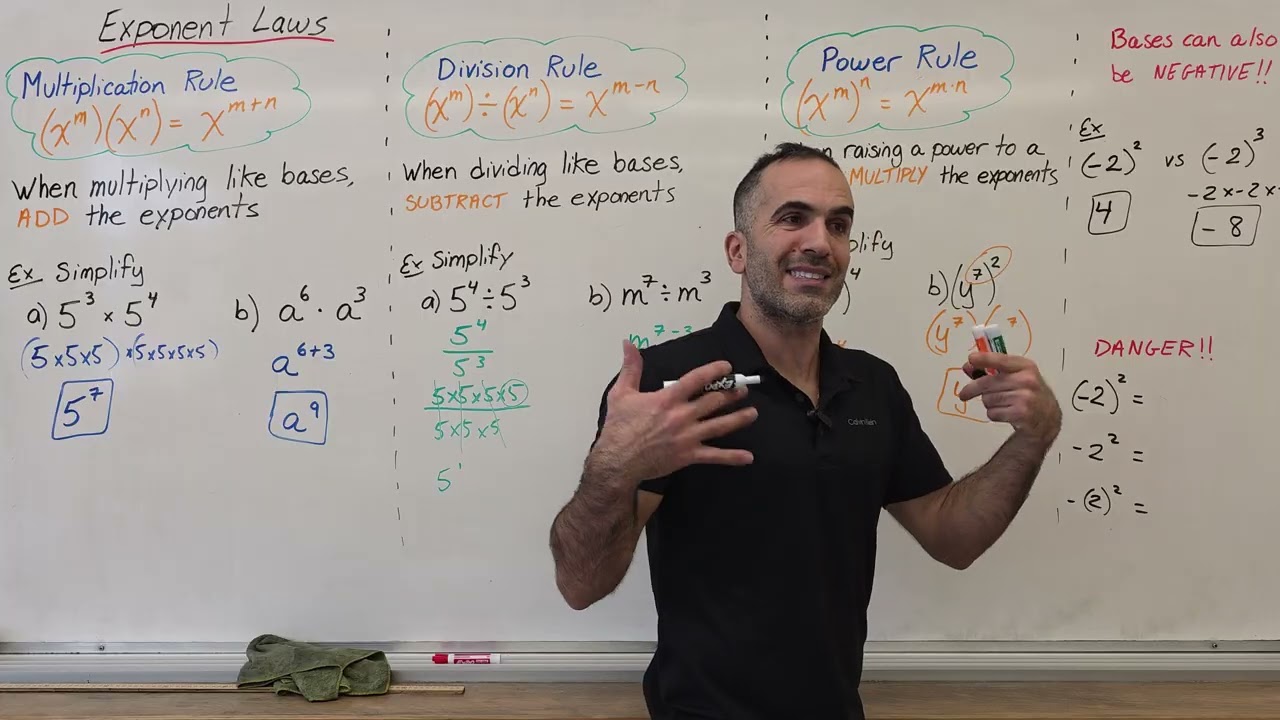 Exponent Laws
Multiplication Rule
(x^m)(x^n) = x^{m+n}
When multiplying like bases,
ADD the exponents
Ex Simplify
a) 5^3 × 5^4
(5×5×5) × (5×5×5×5)
5^7
b) a^6 · a^3
a^{6+3}
a^9
Division Rule
(x^m) ÷ (x^n) = x^{m-n}
When dividing like bases,
SUBTRACT the exponents
Ex Simplify
a) 5^4 ÷ 5^3
5^4
5^3
5×5×5×5
5×5×5
5^1
b) m^7 ÷ m^3
m^{7-3}
Power Rule
(x^m)^n = x^{m·n}
raising a power to a
MULTIPLY the exponents
b) (y^7)^2
(y^7) ( ^7)
y
Bases can also
be NEGATIVE!!
Ex
(-2)^2 vs (-2)^3
-2×-2×
4
-8
DANGER!!
(-2)^2 =
-2^2 =
-(2)^2 =
Calvin Klein
EXPO